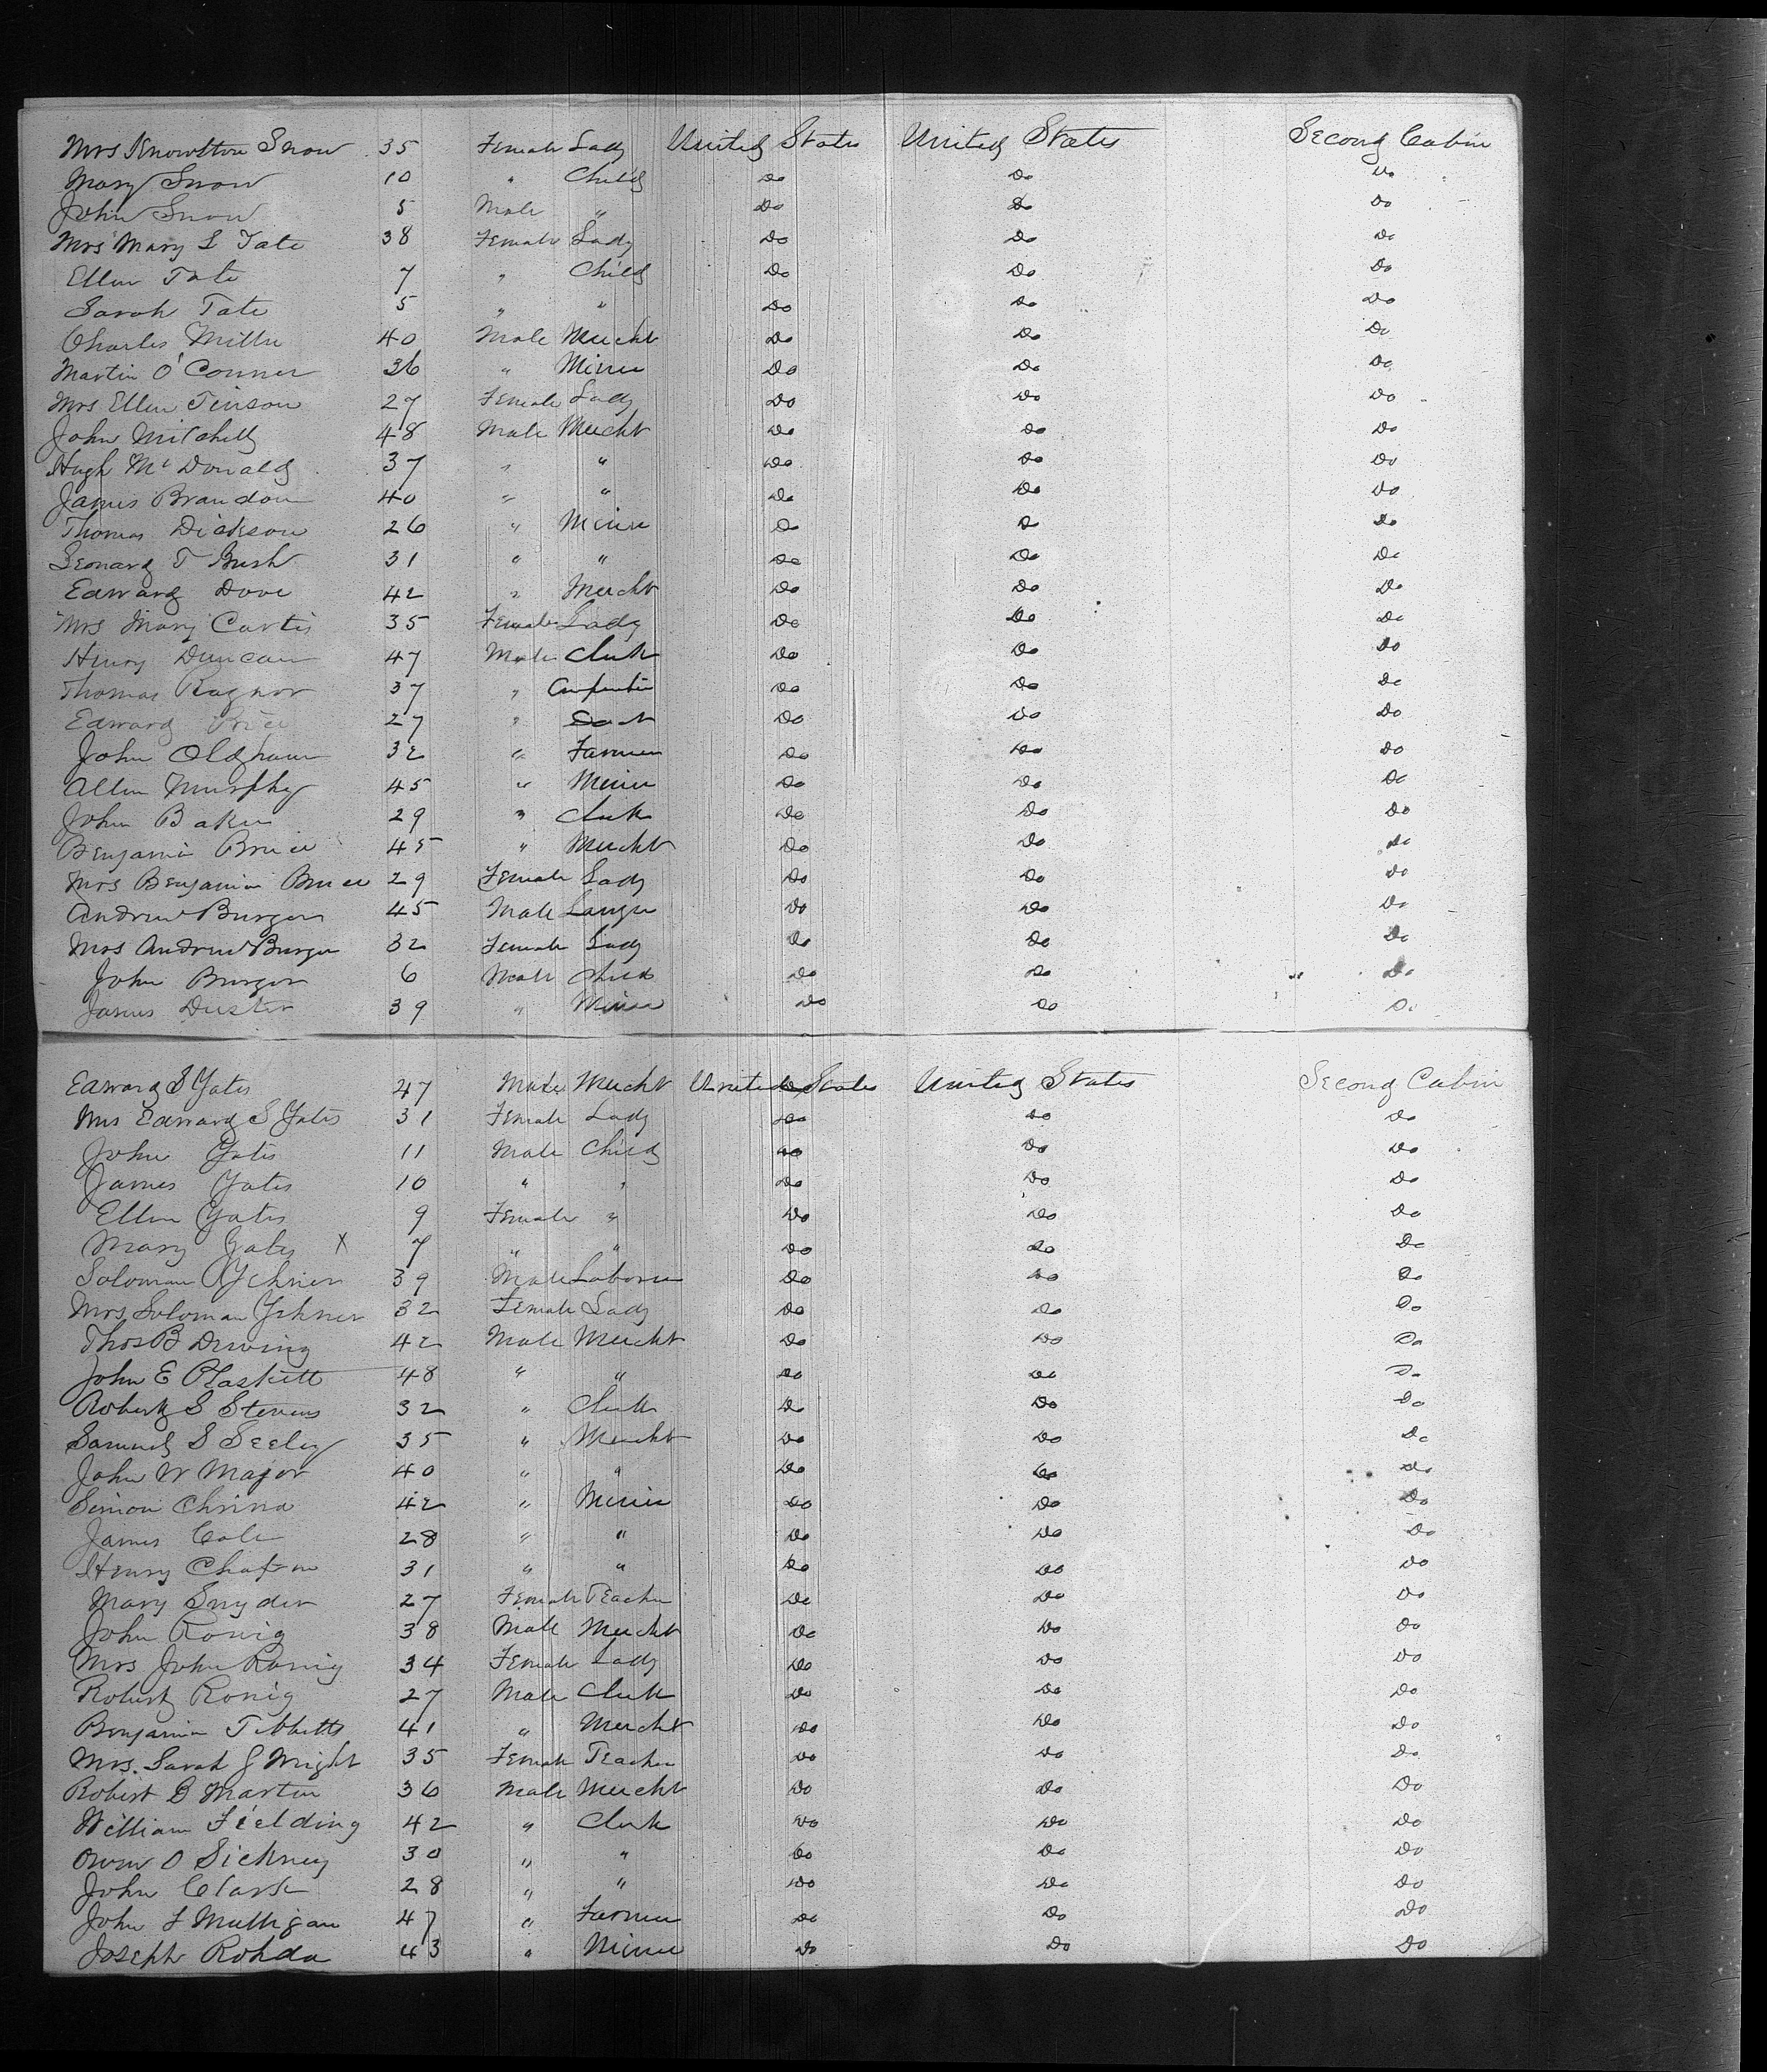 Mrs Knowlton Snow 35 Female Lady United States United States Second Cabin
Mary Snow 10 " Child Do Do Do
John Snow 5 Male " Do Do Do
Mrs Mary L Tate 38 Female Lady Do Do Do
Ellen Tate 7 " Child Do Do Do
Sarah Tate 5 " " Do Do Do
Charles Miller 40 Male Mercht Do Do Do
Martin O'Conner 36 " Miner Do Do Do
Mrs Ellen Tinson 27 Female Lady Do Do Do
John Mitchell 48 Male Mercht Do Do Do
Hugh McDonald 37 " " Do Do Do
James Brandon 40 " " Do Do Do
Thomas Dickson 26 " Miner Do Do Do
Leonard T Bush 31 " " Do Do Do
Edward Dove 42 " Mercht Do Do Do
Mrs Mary Curtis 35 Female Lady Do Do Do
Henry Duncan 47 Male Clerk Do Do Do
Thomas Ragnor 37 " Carpenter Do Do Do
Edward Price 27 " Do Do Do
John Oldham 32 " Farmer Do Do Do
Allen Murphy 45 " Miner Do Do Do
John Baker 29 " Clerk Do Do Do
Benjamin Bruce 45 " Mercht Do Do Do
Mrs Benjamin Bruce 29 Female Lady Do Do Do
Andrew Burger 45 Male Do Do Do
Mrs Andrew Burger 32 Female Lady Do Do Do
John Burger 6 Male Child Do Do Do
James Duster 39 " Miner Do Do Do
Edward S Yates 47 Male Mercht United States United States Second Cabin
Mrs Edward S Yates 31 Female Lady Do Do Do
John Yates 11 Male Child Do Do Do
James Yates 10 " " Do Do Do
Ellen Yates 9 Female " Do Do Do
Mary Yates X 7 " " Do Do Do
Soloman 39 Male Laborer Do Do Do
Mrs Soloman 32 Female Lady Do Do Do
Thos B Dewing 42 Male Mercht Do Do Do
John E Plaskett 48 " " Do Do Do
Robert S Stevens 32 " Clerk Do Do Do
Samuel S Seeley 35 " Mercht Do Do Do
John W Major 40 " " Do Do Do
Simon China 42 " Miner Do Do Do
James Cole 28 " " Do Do Do
Henry 31 " " Do Do Do
Mary Snyder 27 Female Teacher Do Do Do
John Ronig 38 Male Mercht Do Do Do
Mrs John Ronig 34 Female Lady Do Do Do
Robert Ronig 27 Male Clerk Do Do Do
Benjamin Tibbetts 41 " Mercht Do Do Do
Mrs. Sarah J Wright 35 Female Teacher Do Do Do
Robert B Martin 36 Male Mercht Do Do Do
William Fielding 42 " Clerk Do Do Do
Owen O Sickney 30 " " Do Do Do
John Clark 28 " " Do Do Do
John F Mulligan 47 " Farmer Do Do Do
Joseph Rohda 43 " Miner Do Do Do